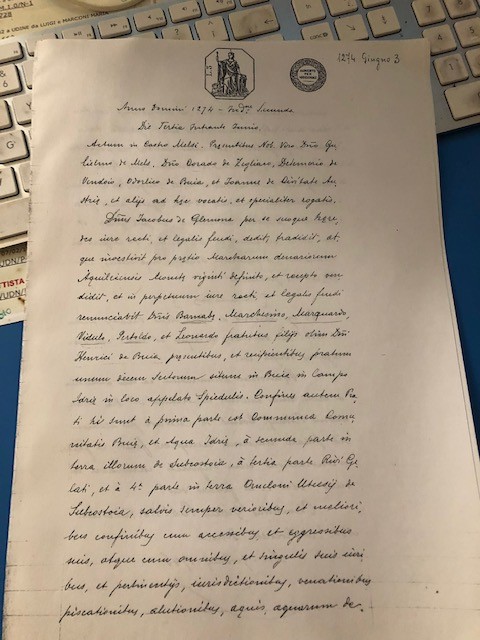 A UDINE da LUIGI e MARCONI MARIA
1274 Giugno 3
Anno Domini 1274 – Ind.e Secunda
Die Tertia Intrante Junio.
Actum in Castro Melsi. Presentibus Nob. Viro Dño Gu,
lielmo de Mels. Dño Corado de Zegliaco, Detemario de
Vendoio, Odorlico de Buia, et Joanne de Civitate Au,
striæ, et alijs ad hæc vocatis, et specialiter rogatis.
Dñus Jacobus de Glemona per se suosque hære,
des iure recti, et legalis feudi, dedit, tradidit, at,
que investivit pro pretio Marcharum denariorum
Aquileiensis Monetæ viginti definito, et recepto ven
didit, et in perpetuum iure recti et legalis feudi
renunciavit Dñis Barnabæ, Marchesino, Marquardo,
Vidulo, Pertoldo, et Leonardo fratribus filijs olim Dñi
Henrici de Buia presentibus, et recipientibus pratum
unum decem Sectorum situm in Buia in Campo
Idriæ in loco appellato Spiedulis. Confines autem Pra,
ti hi sunt à prima parte est Communca Comu,
nitatis Buiæ, et Aqua Idriæ, à secunda parte in
terra illorum de Subcostoia, à tertia parte Rivi Ge
lati, et à 4.a parte in terra Omeloni Utussij de
Subcostoia, salvis semper verioribus, et meliori,
bus confinibus cum accessibus et eggressibus
suis, atque cum omnibus, et singulis suis iuri,
bus, et pertinentijs, iurisdictionibus, venationibus
piscationibus, alutionibus, aquis, aquarum de,